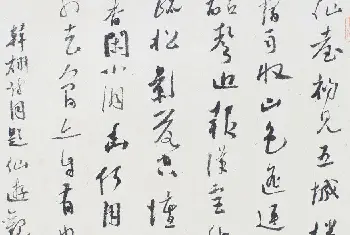 仙臺初見五城樓
宿雨收山色遥連
砧聲近報漢宮
疏松影落空壇
香閑小洞幽何用
去人間亦自有
韓翃詩同題仙遊觀